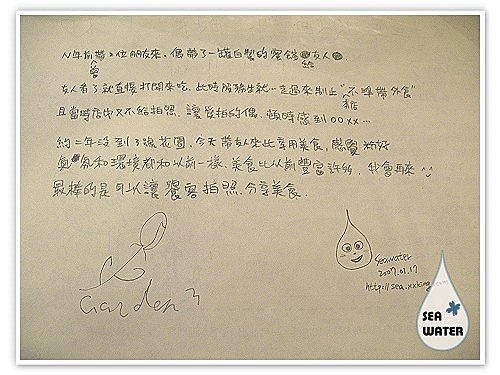 N年前曾帶2位朋友來,偶帶了一罐自製的蜜餞給友人
友人看了就直接打開來吃,此時服務生就…走過來制止"不準帶外食"
且當時店中又不給拍照,讓愛拍的偶,頓時感到OOXX…
約二年沒到3號花園,今天帶友人來此享用美食,感覺
氣氛和環境都和以前一樣,美食比以前豐富許多,我會再來
最棒的是可以讓饕客拍照.分享美食.
Garden 3
Seawater
2007.01.17
http://sea.xxking.com
SEA
WATER